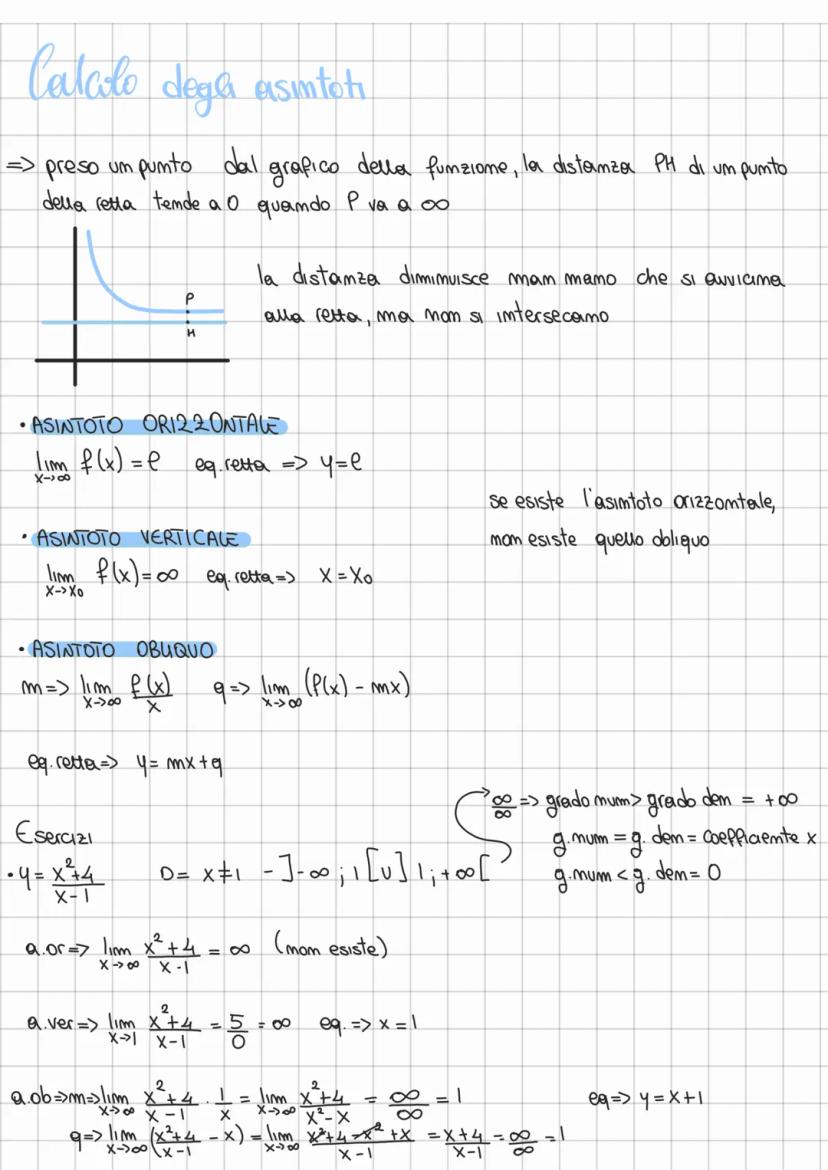 Calcolo degli asintoti
=> preso un punto dal grafico della funzione, la distanza PH di un punto
della retta tende a 0 quando P va a ∞
P
H
la distanza diminuisce man mano che si avvicina
alla retta, ma non si intersecano
• ASINTOTO ORIZZONTALE
lim x→∞ f(x) = ℓ eq. retta => y=ℓ
se esiste l'asintoto orizzontale,
non esiste quello obliquo
• ASINTOTO VERTICALE
lim x→x₀ f(x) = ∞ eq. retta => x = x₀
• ASINTOTO OBLIQUO
m => lim x→∞ f(x)/x q => lim x→∞ (f(x) - mx)
eq. retta => y = mx+q
∞/∞ => grado num > grado den = +∞
g. num = g. den = coefficiente x
g. num < g. den = 0
Esercizi
• y = x²+4/x-1 D = x≠1 - ]-∞; 1[ U ]1; +∞[
a.or => lim x→∞ x²+4/x-1 = ∞ (non esiste)
a.ver => lim x→1 x²+4/x-1 = 5/0 = ∞ eq. => x = 1
a.ob => m => lim x→∞ x²+4/x-1 · 1/x = lim x→∞ x²+4/x²-x = ∞/∞ = 1 eq => y = x+1
q => lim x→∞ (x²+4/x-1 - x) = lim x→∞ x²+4-x²+x/x-1 = x+4/x-1 = ∞/∞ = 1